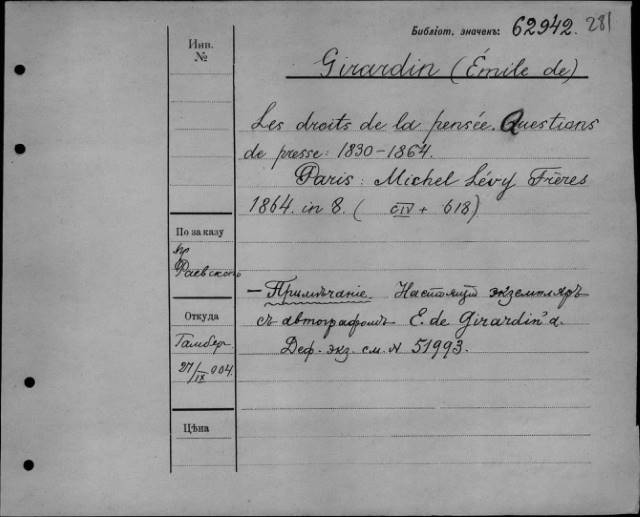 Библіот. значекъ: 62942. 281
Инв.
№
Girardin (Émile de)
Les droits de la pensée. Questions
de presse: 1830-1864.
Paris: Michel Lévy Frères
1864. in 8. ( CIV + 618)
По заказу
пр.
Фаевского
— Примѣчаніе. Настоящій экземпляръ
съ автографомъ E. de Girardin'a.
Деф. экз. см. N 51993.
Откуда
Гамбер
27/IX 904.
Цѣна